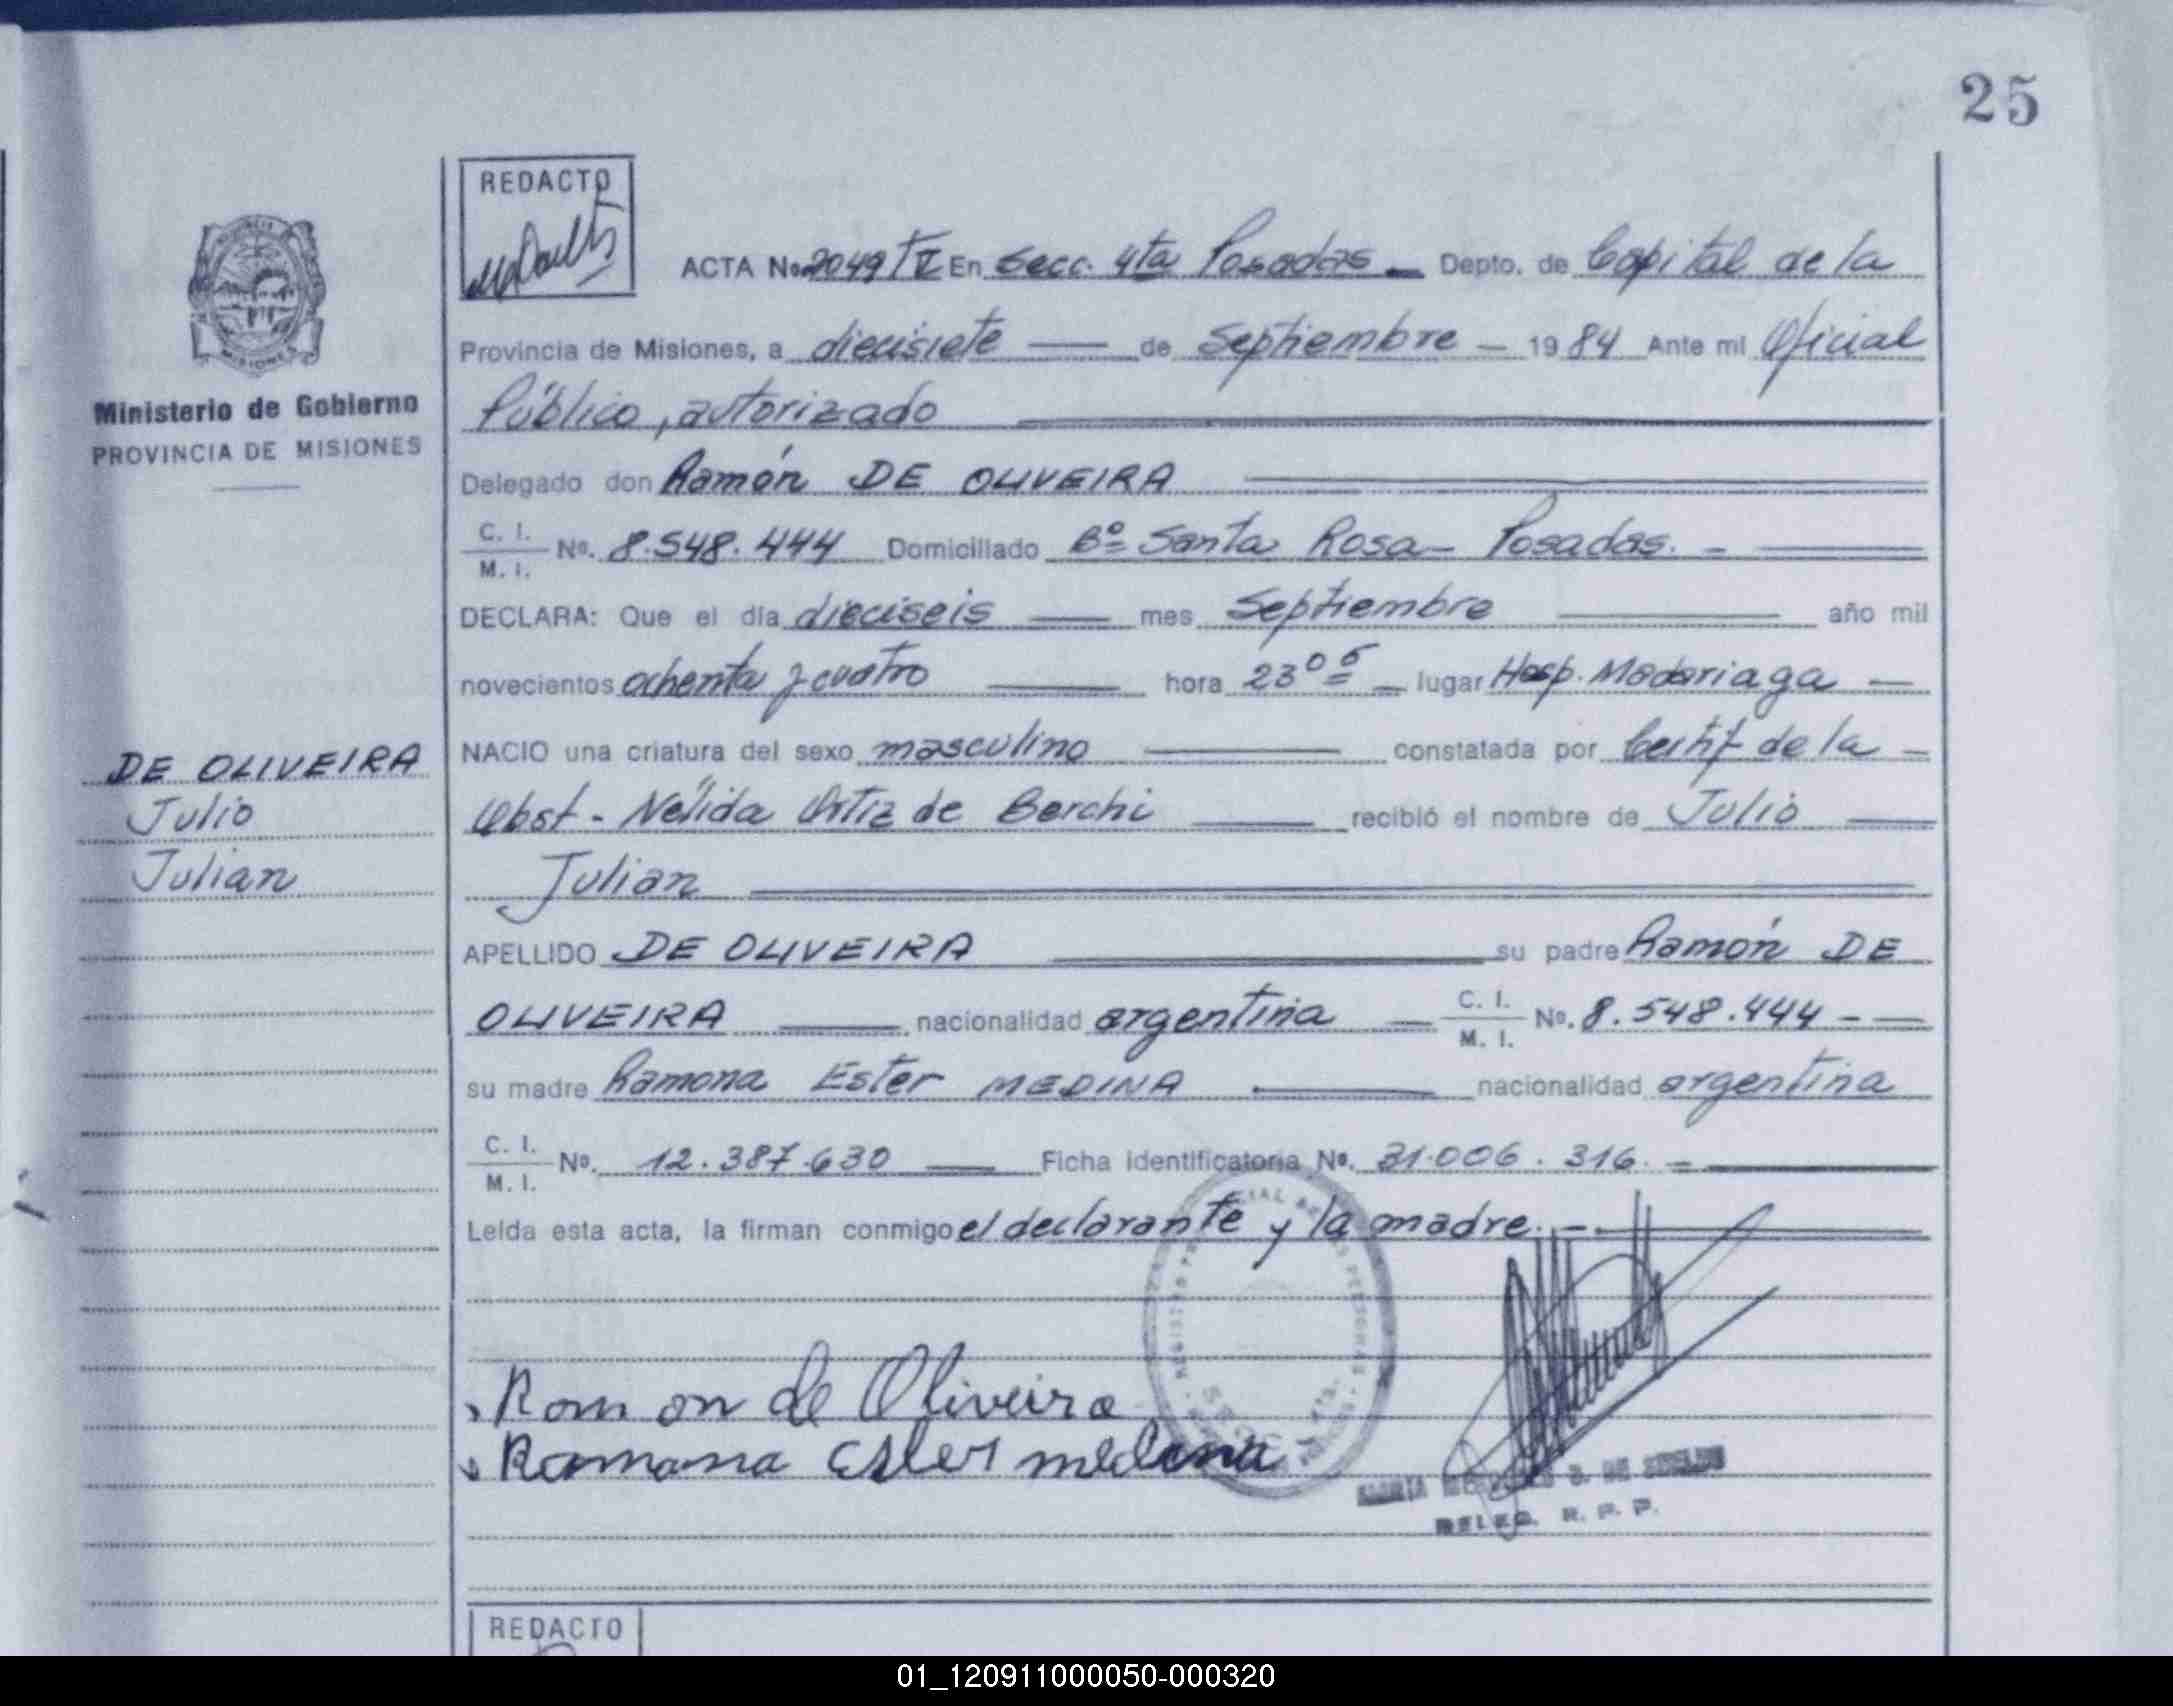 25
REDACTO
ACTA No. 2049 TV En Secc. 4ta Posadas Depto. de Capital de la
Provincia de Misiones, a diecisiete de Septiembre 1984 Ante mi Oficial
Público, autorizado
Delegado don Ramón DE OLIVEIRA
C. I. M. I. No. 8.548.444 Domiciliado Bº Santa Rosa - Posadas.
DECLARA: Que el día dieciseis mes Septiembre año mil
novecientos ochenta y cuatro hora 23 05 lugar Hosp. Madariaga
NACIO una criatura del sexo masculino constatada por Certif de la
Obst. Nélida Ortiz de Berchi recibió el nombre de Julio
Julian
APELLIDO DE OLIVEIRA su padre Ramón DE
OLIVEIRA nacionalidad argentina C. I. M. I. No. 8.548.444
su madre Ramona Ester MEDINA nacionalidad argentina
C. I. M. I. No. 12.387.630 Ficha identificatoria No. 31.006.316.
Leída esta acta, la firman conmigo el declarante y la madre.
Ramon de Oliveira
Ramona Ester medina
DELEG. R. P. P.
MISIONES
Ministerio de Gobierno
PROVINCIA DE MISIONES
DE OLIVEIRA
Julio
Julian
REDACTO
01_120911000050-000320